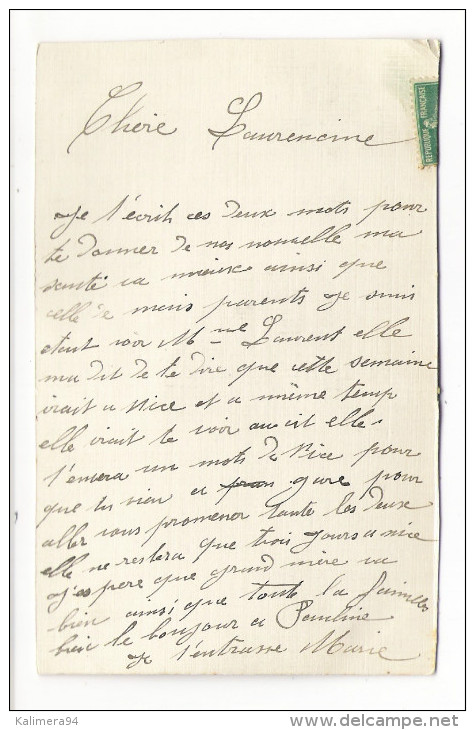 Chère Laurencine
REPUBLIQUE FRANÇAISE
Je t'écrit ces deux mots pour
te donner de nos nouvelle ma
santé va mieux ainsi que
celle de mais parents Je suis
etait voir Mme Laurent elle
ma dit de te dire que cette semaine
irait a Nice et a même temp
elle irait te voir
t'envera un mots de Nice pour
que tu vien a gare pour
aller vous promener toute les deux
elle ne restera que trois jours a nice
J'espere que grand mère va
bien ainsi que toute la famille
bien le bonjour a Pauline
Je t'embrasse Marie
Kalimera94
www.delcampe.net